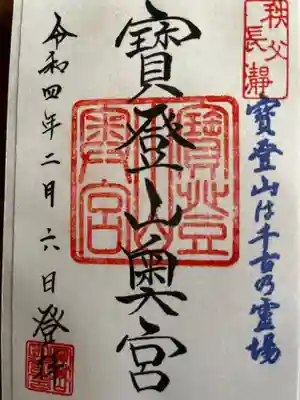 秩父
長瀞
寶登山は千古の霊場
寶登山奥宮
寶登山
奥宮
令和四年二月六日登拝